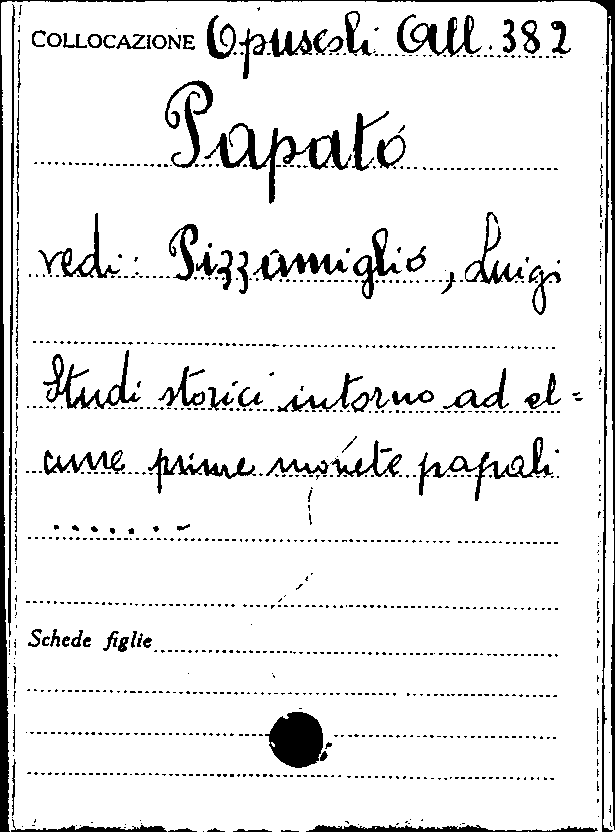 COLLOCAZIONE Opuscoli All. 382
Papato
vedi: Pizzamiglio, Luigi
Studi storici intorno ad al=
cune prime monete papali
.......
Schede figlie